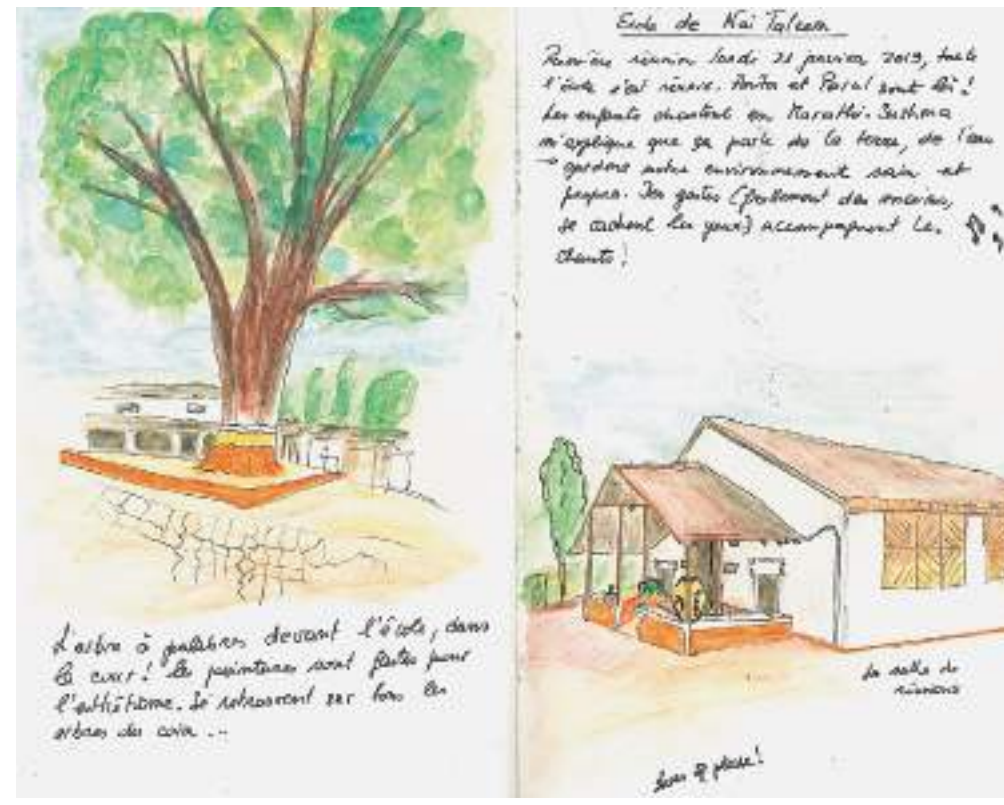 L'arbre à palabres devant l'école, dans
la cour! les peintures sont faites pour
l'esthétisme. Se retrouvent sur tous les
arbres du coin ...
Ecole de Nai Taleem
Première réunion lundi 21 janvier 2019, toute
l'école s'est réunie. et sont là!
Les enfants chantent en Marathi. Sushma
m'explique que ça parle de la terre, de l'eau
→ gardons notre environnement sain et
propre. Des gestes (frottement des mains,
se cachent les yeux) accompagnent les
chants!
La salle de
réunions
please!